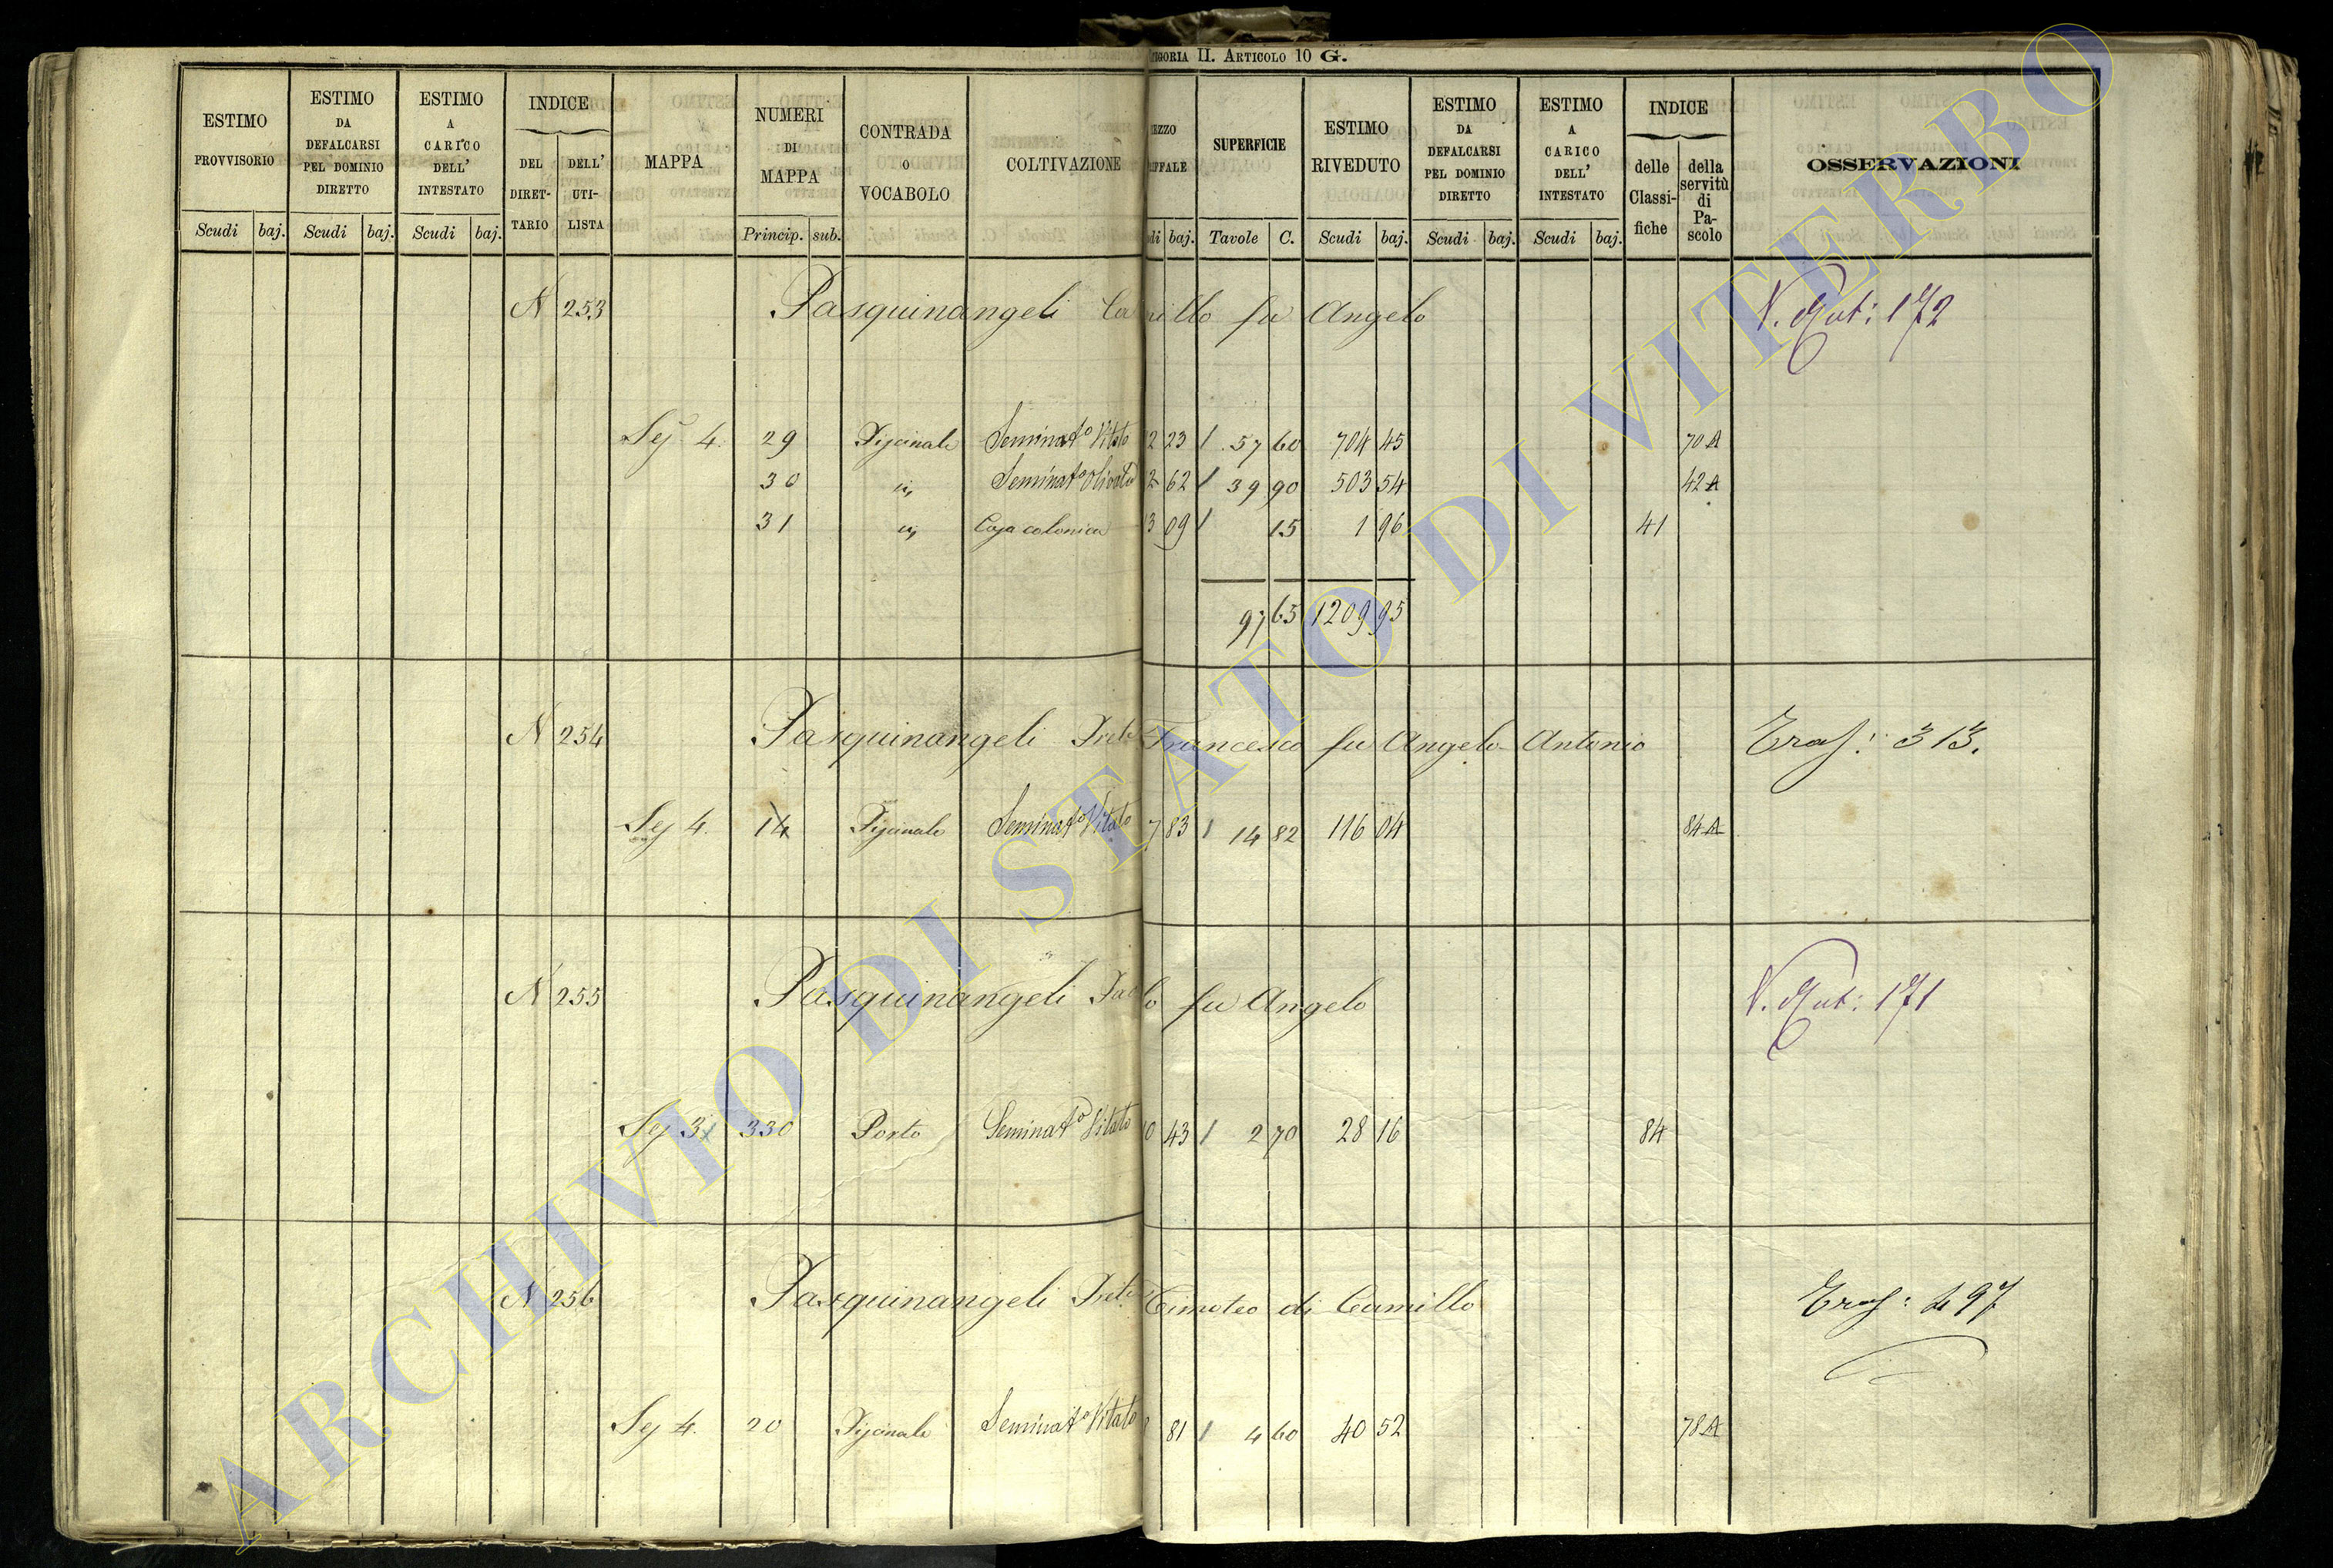 TEGORIA II. ARTICOLO 10 G.
ESTIMO PROVVISORIO Scudi baj.
ESTIMO DA DEFALCARSI PEL DOMINIO DIRETTO Scudi baj.
ESTIMO A CARICO DELL' INTESTATO Scudi baj.
INDICE DEL DIRETTARIO DELL' UTILISTA
MAPPA
NUMERI DI MAPPA Princip. sub.
CONTRADA O VOCABOLO
COLTIVAZIONE
EZZO IFFALE di baj.
SUPERFICIE Tavole C.
ESTIMO RIVEDUTO Scudi baj.
ESTIMO DA DEFALCARSI PEL DOMINIO DIRETTO Scudi baj.
ESTIMO A CARICO DELL' INTESTATO Scudi baj.
INDICE delle Classifiche della servitù di Pascolo
OSSERVAZIONI
N 253 Pasquinangeli Camillo fu Angelo 172
4. 29 Seminato Vitato 2 23 / 57 60 704 45 70 A
30 Seminato Olivato 2 62 / 39 90 503 54 42 A
31 Casa colonica 3 09 / 15 1 96 41
97 65 1209 95
N 254 Pasquinangeli Francesco fu Angelo Antonio Tras: 313.
4. 14 Seminato Vitato 7 83 / 14 82 116 04 84 A
N 255 Pasquinangeli fu Angelo 171
3 330 Porto Seminato Vitato 0 43 / 2 70 28 16 84
N 256 Pasquinangeli Timoteo di Camillo Tras: 497
4. 20 Seminato Vitato 81 / 4 60 40 52 78 A
ARCHIVIO DI STATO DI VITERBO